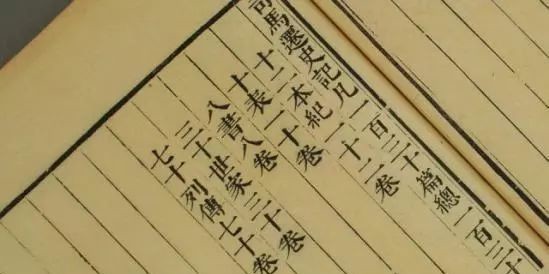 司馬遷史記凡一百三十篇總一百三十
十二本紀一十二卷
十表一十卷
八書八卷
三十世家三十卷
七十列傳七十卷